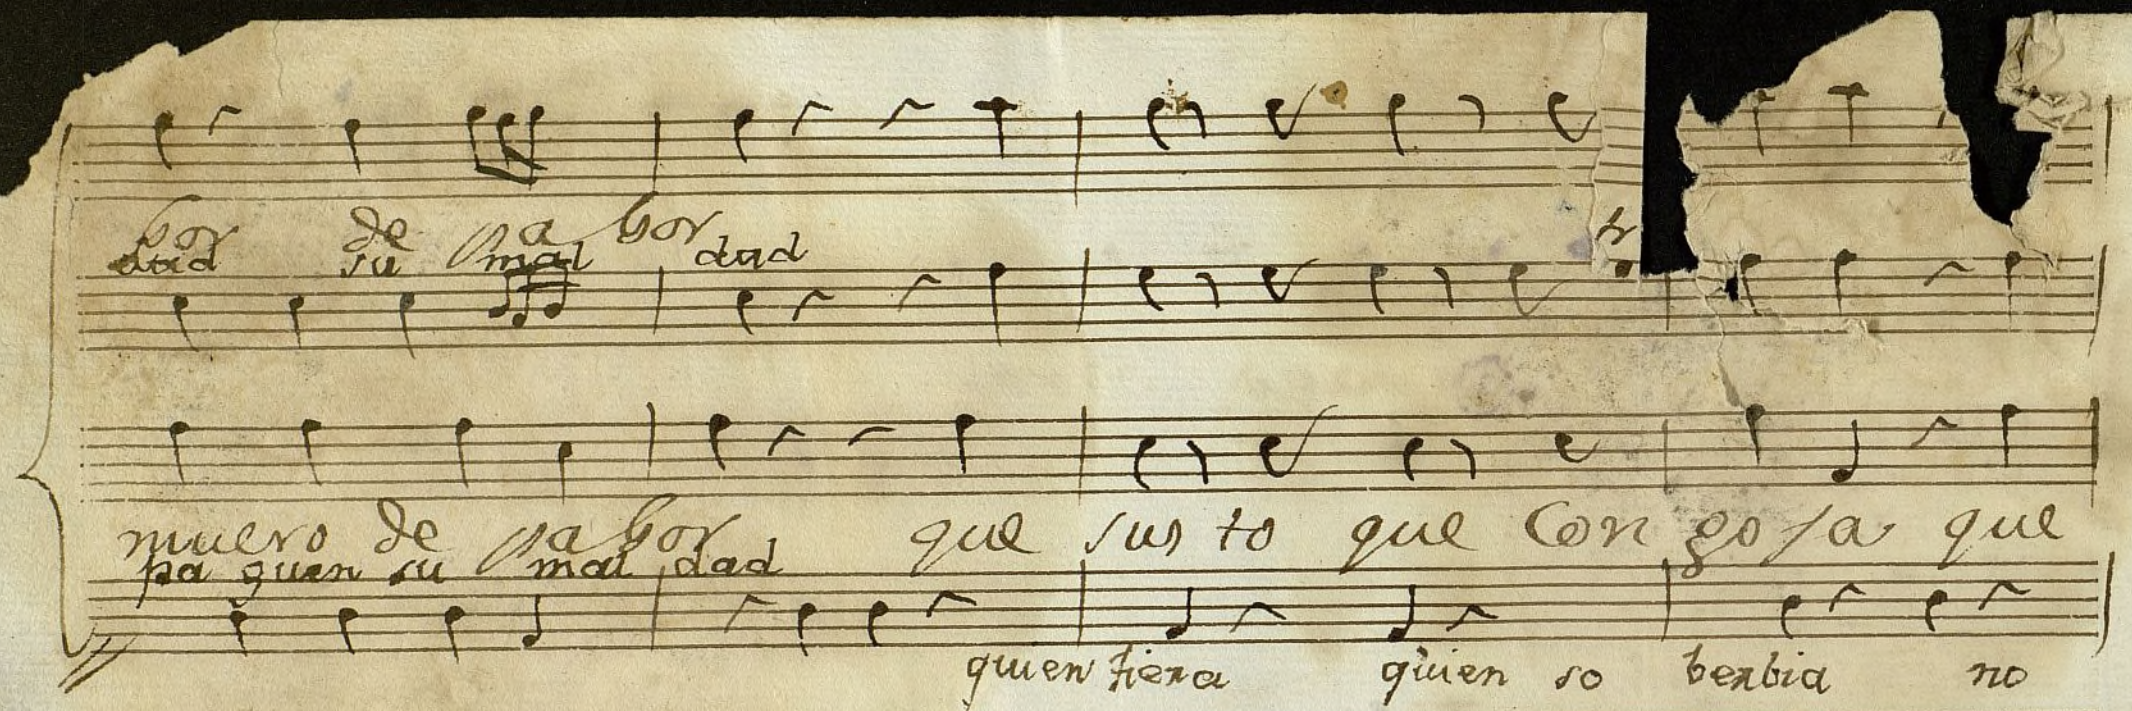 bor de pa bor
dad su mal dad
tr
muero de pa bor que sus to que Con go ja que
pa guen su mal dad
quien fiera quien so berbia no